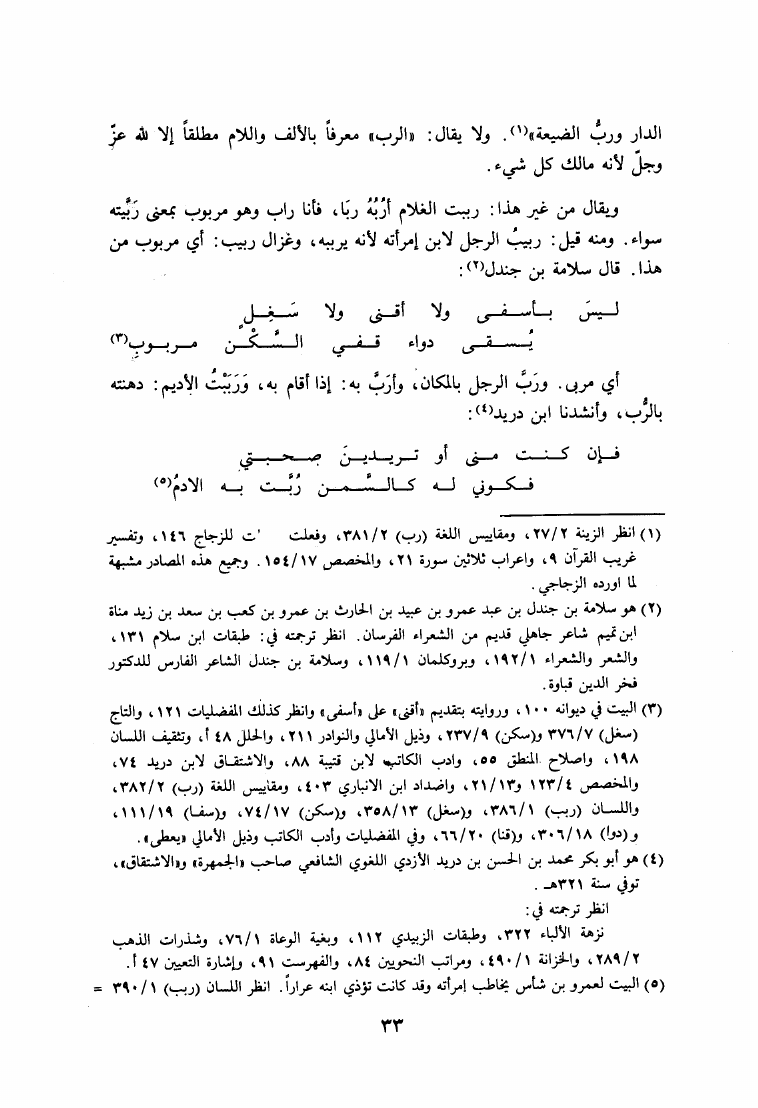 الدار وربُّ الضيعة»(١). ولا يقال: «الرب» معرفاً بالألف واللام مطلقاً إلا لله عزّ
وجلّ لأنه مالك كل شيء.
ويقال من غير هذا: ربيت الغلام أرُبُّهُ ربَا، فأنا راب وهو مربوب بمعنى رَبَّيته
سواء. ومنه قيل: ربيبُ الرجل لابن إمرأته لأنه يربيه، وغزال ربيب: أي مربوب من
هذا. قال سلامة بن جندل(٢):
لـيـسَ بـأسـفـى ولا أقـنـى ولا سَـغِـلٍ
يُـسـقـى دواء قـفـي الـسَّـكْـن مـربـوبِ(٣)
أي مربى. ورَبَّ الرجل بالمكان، وأرَبَّ به: إذا أقام به، وَرَبَبْتُ الأديم: دهنته
بالرُّب، وأنشدنا ابن دريد(٤):
فـإن كـنـت مـنـى أو تـريـديـنَ صـحـبـتي
فـكـوني لـه كـالـسَّـمـن رُبَّـت بـه الادمُ(٥)
(١) انظر الزينة ٢٧/٢، ومقاييس اللغة (رب) ٣٨١/٢، وفعلت 'ت للزجاج ١٤٦، وتفسير
غريب القرآن ٩، واعراب ثلاثين سورة ٢١، والمخصص ١٥٤/١٧. وجميع هذه المصادر مشبهة
لما اورده الزجاجي.
(٢) هو سلامة بن جندل بن عبد عمرو بن عبيد بن الحارث بن عمرو بن كعب بن سعد بن زيد مناة
ابن تميم شاعر جاهلي قديم من الشعراء الفرسان. انظر ترجمته في: طبقات ابن سلام ١٣١،
والشعر والشعراء ١٩٢/١، وبروكلمان ١١٩/١، وسلامة بن جندل الشاعر الفارس للدكتور
فخر الدين قباوة.
(٣) البيت في ديوانه ١٠٠، وروايته بتقديم «أقنى» على «أسفى» وانظر كذلك المفضليات ١٢١، والتاج
(سغل) ٣٧٦/٧ و(سكن) ٢٣٧/٩، وذيل الأمالي والنوادر ٢١١، والحلل ٤٨ أ، وتثقيف اللسان
١٩٨، واصلاح المنطق ٥٥، وادب الكاتب لابن قتيبة ٨٨، والاشتقاق لابن دريد ٧٤،
والمخصص ١٢٣/٤ و٢١/١٣، واضداد ابن الانباري ٤٠٣، ومقاييس اللغة (رب) ٣٨٢/٢،
واللسان (ربب) ٣٨٦/١، و(سغل) ٣٥٨/١٣، و(سكن) ٧٤/١٧، و(سفا) ١١١/١٩،
و(دوا) ٣٠٦/١٨، و(قنا) ٦٦/٢٠، وفي المفضليات وأدب الكاتب وذيل الأمالي «يعطى».
(٤) هو أبو بكر محمد بن الحسن بن دريد الأزدي اللغوي الشافعي صاحب «الجمهرة» و«الاشتقاق»،
توفي سنة ٣٢١هـ.
انظر ترجمته في:
نزهة الألباء ٣٢٢، وطبقات الزبيدي ١١٢، وبغية الوعاة ٧٦/١، وشذرات الذهب
٢٨٩/٢، والخزانة ٤٩٠/١، ومراتب النحويين ٨٤، والفهرست ٩١، وإشارة التعيين ٤٧ أ.
(٥) البيت لعمرو بن شأس يخاطب إمرأته وقد كانت تؤذي ابنه عراراً. انظر اللسان (ربب) ٣٩٠/١ =
٣٣